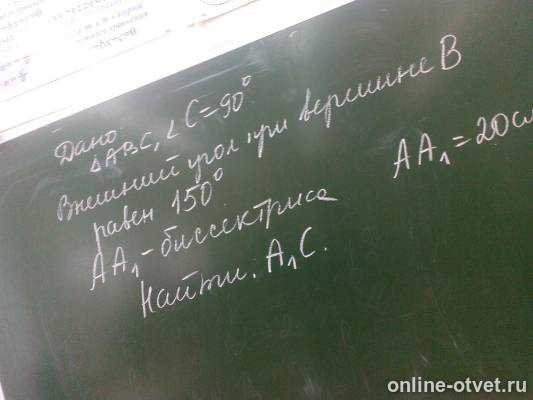 Дано
△ABC, ∠C=90°
Внешний угол при вершине B
равен 150°
AA₁-биссектриса
AA₁=20см
Найти: A₁C.
online-otvet.ru